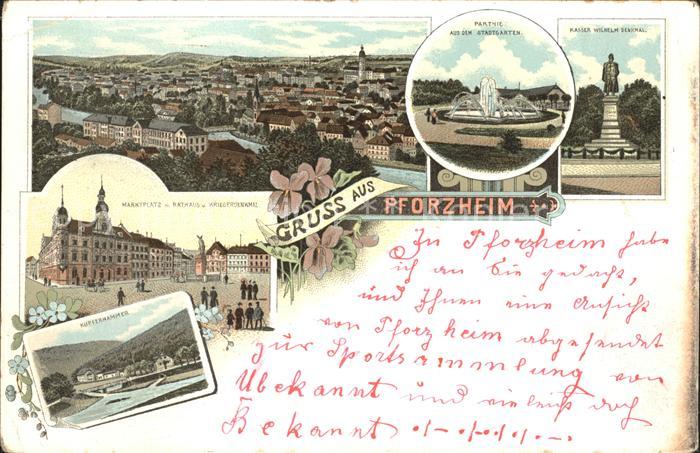 PARTHIE
AUS DEM STADTGARTEN.
KAISER WILHELM DENKMAL.
MARKTPLATZ M. RATHAUS U. KRIEGERDENKMAL
GRUSS AUS
PFORZHEIM
KUPFERHAMMER
In Pforzheim habe
ich an Sie gedacht,
und Ihnen eine Ansicht
von Pforzheim abgesendet
zur Sportsammlung von
Ubekannt und vieleich doch
Bekannt